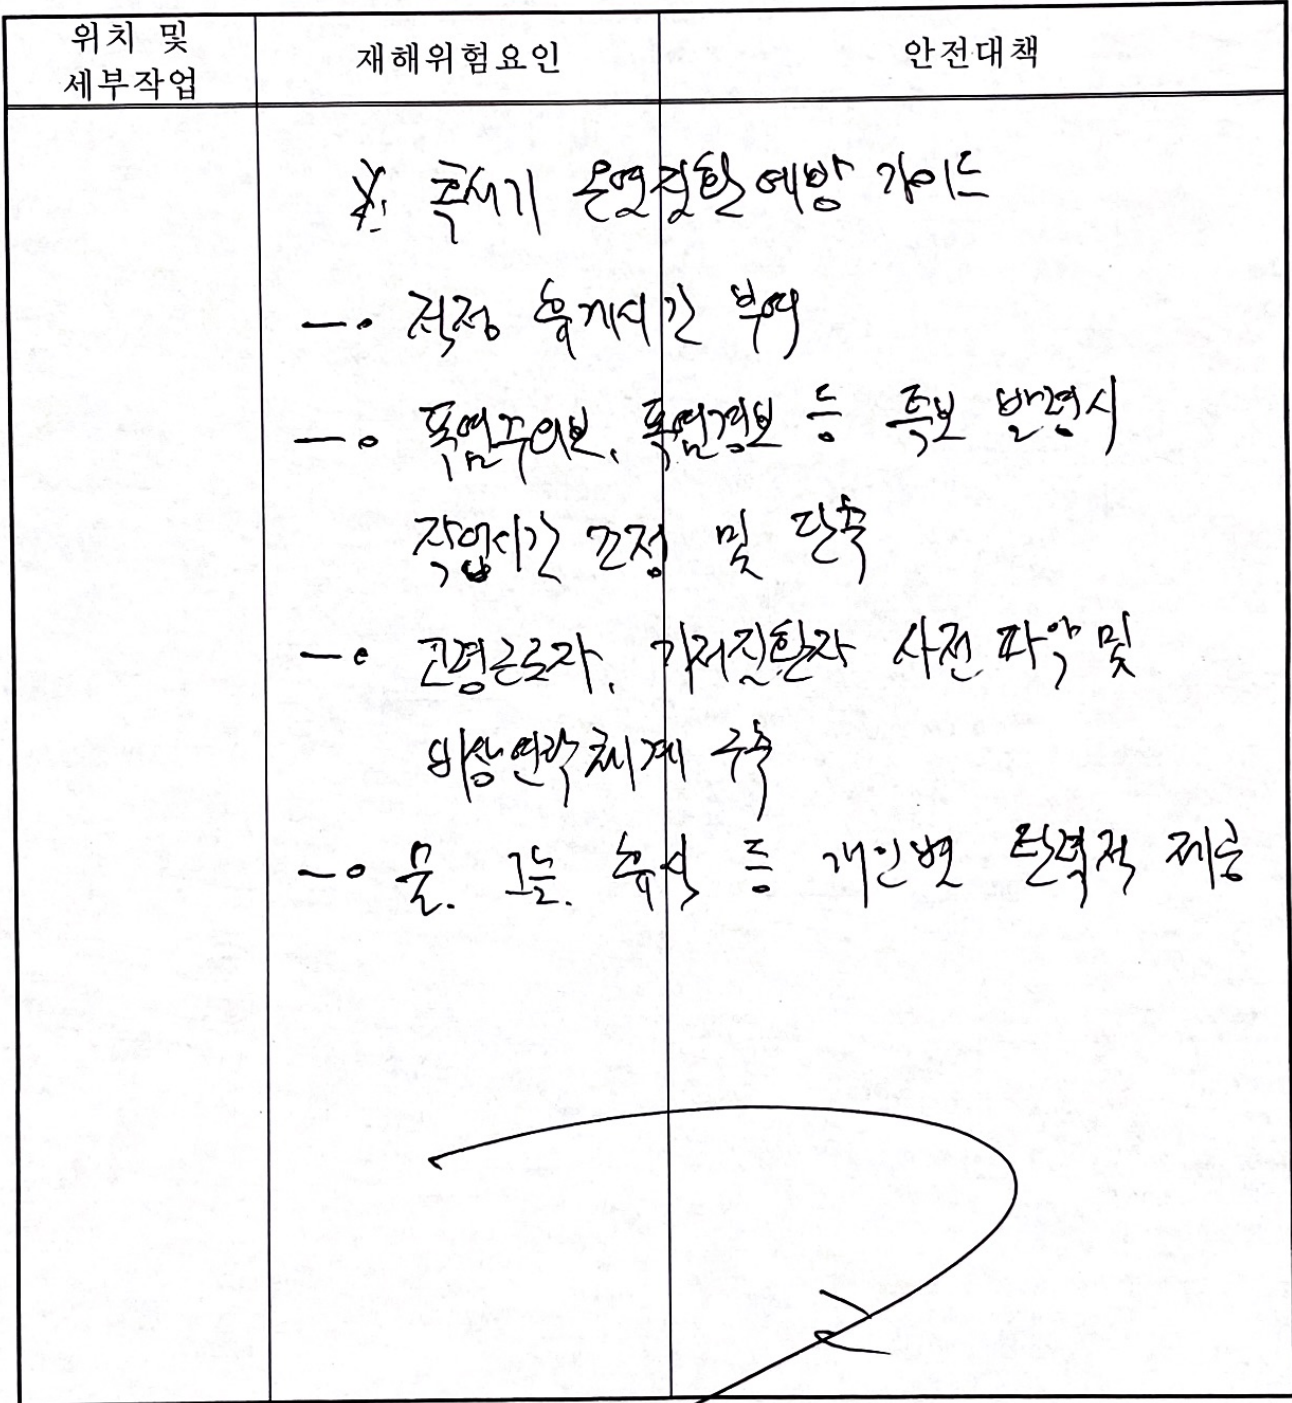 위치 및
세부작업
재해위험요인
안전대책
※ 혹서기 온열질환 예방 가이드
- 적정 휴게시간 부여
- 폭염주의보, 폭염경보 등 특보 발령시
작업시간 조정 및 단축
- 고령근로자, 기저질환자 사전 파악 및
비상연락체계 구축
- 물, 그늘, 휴식 등 개인별 탄력적 제공